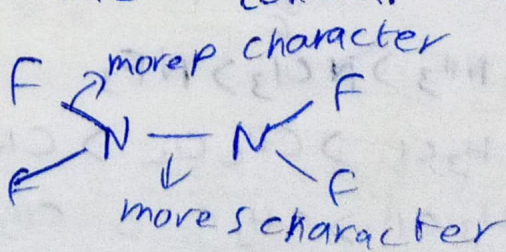 more p character
F F
N — N
F F
more s character